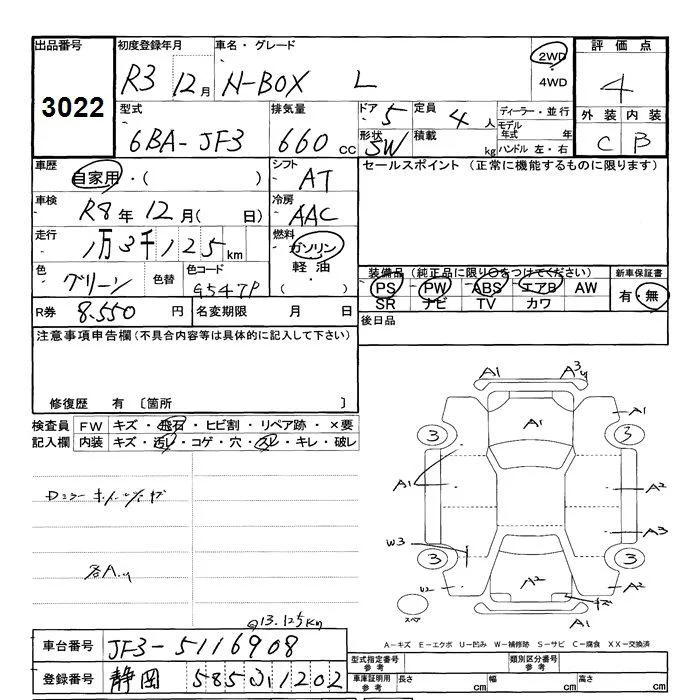 出品番号 初度登録年月 車名・グレード 評価点
3022 R3 12月 N-BOX L 2WD 4WD 4
型式 排気量 ドア 5 定員 4人 ディーラー・並行 外装 内装
6BA-JF3 660cc 形状 SW 積載 kg モデル年式 年 ハンドル 左・右 C B
車歴 自家用・( ) シフト AT セールスポイント (正常に機能するものに限ります)
車検 R8年12月( 日) 冷房 AAC
走行 1万3千125km 燃料 ガソリン 軽油 ( )
色 グリーン 色替 色コード G547P
装備品(純正品に限り〇をつけてください) 新車保証書
PS PW ABS エアB AW 有・無
SR ナビ TV カワ
R券 8.550円 名変期限 月 日 後日品
注意事項申告欄(不具合内容等は具体的に記入して下さい)
修復歴 有 〔箇所 〕
検査員記入欄 FW キズ・飛石・ヒビ割・リペア跡・×要
内装 キズ・汚レ・コゲ・穴・スレ・キレ・破レ
A1 A3
A1 A1
3 3
A1 A2
A3
W3
3 3
U2 A2 A2
スペア A1
@13.125km
A-キズ E-エクボ U-凹み W-補修跡 S-サビ C-腐食 XX-交換済
車台番号 JF3-5116908 型式指定番号 参考 類別区分番号 参考
登録番号 静岡 585 1202 車庫証明用 参考 長さ cm 幅 cm 高さ cm